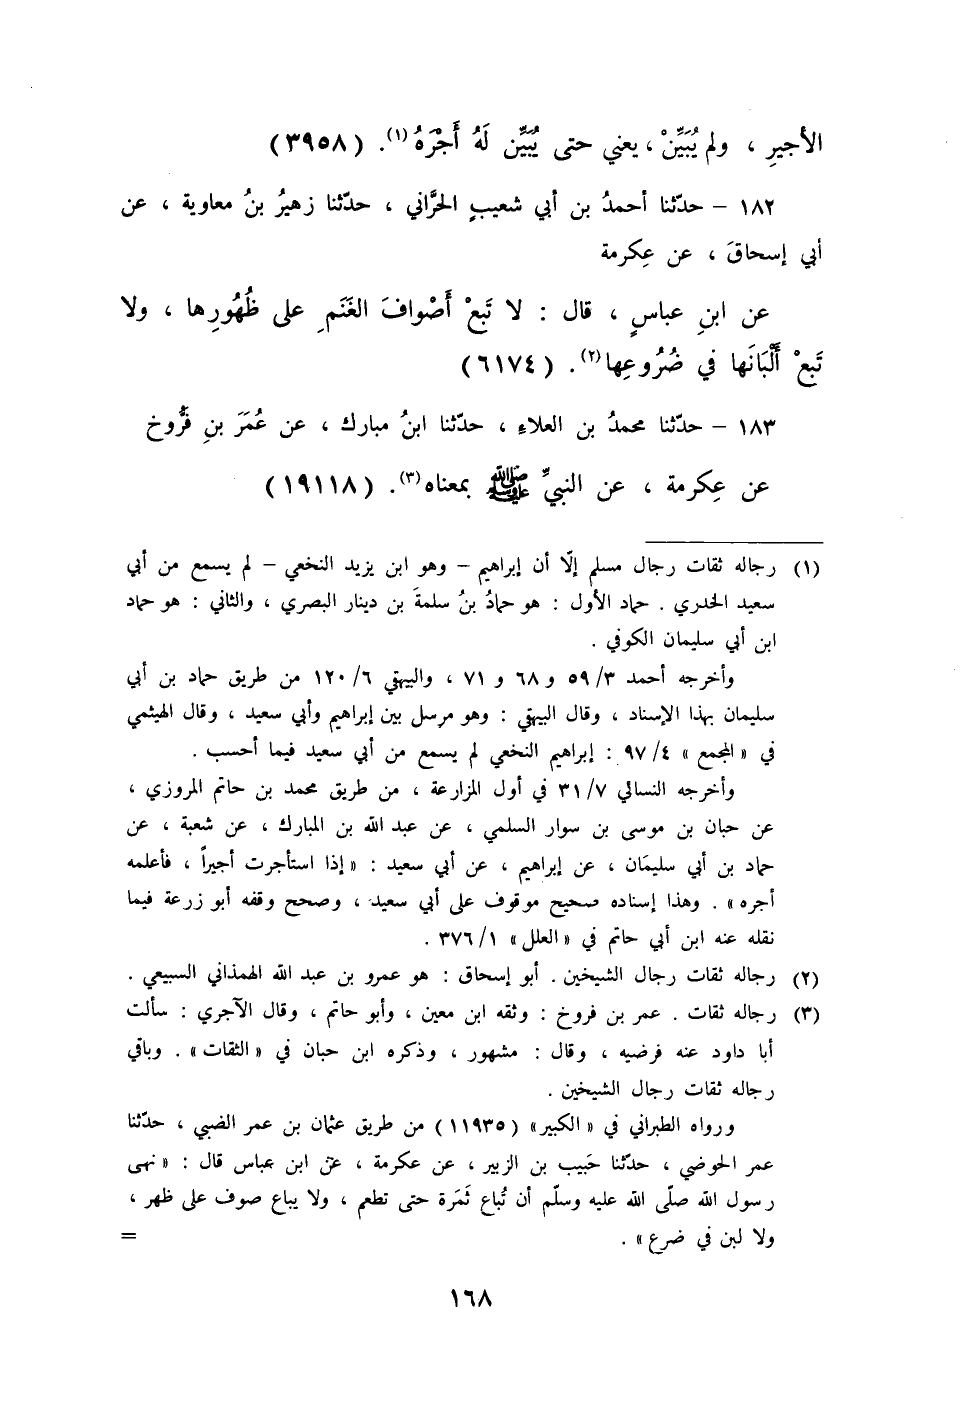 الأجيرِ ، ولم يُبَيِّنْ ، يعني حتى يُبَيِّن لَهُ أَجْرَهُ(١). (٣٩٥٨)
١٨٢ – حدّثنا أحمدُ بن أبي شعيبٍ الحَرَّاني ، حدّثنا زهيرُ بنُ معاوية ، عن
أبي إسحاقَ ، عن عِكرمة
عن ابنِ عباسٍ ، قال : لا تَبعْ أَصْوافَ الغَنَمِ على ظُهُورِها ، ولا
تَبعْ أَلْبَانَها في ضُرُوعِها(٢). (٦١٧٤)
١٨٣ – حدّثنا محمدُ بن العلاءِ ، حدّثنا ابنُ مبارك ، عن عُمَرَ بنِ فَرُّوخ
عن عِكرمة ، عن النبيِّ ﷺ بمعناه(٣). (١٩١١٨)
(١) رجاله ثقات رجال مسلم إلّا أن إبراهيم – وهو ابن يزيد النخعي – لم يسمع من أبي
سعيد الخدري . حماد الأول : هو حمادُ بنُ سلمةَ بن دينار البصري ، والثاني : هو حماد
ابن أبي سليمان الكوفي .
وأخرجه أحمد ٥٩/٣ و ٦٨ و ٧١ ، والبيهقي ١٢٠/٦ من طريق حماد بن أبي
سليمان بهذا الإسناد ، وقال البيهقي : وهو مرسل بين إبراهيم وأبي سعيد ، وقال الهيثمي
في «المجمع» ٩٧/٤ : إبراهيم النخعي لم يسمع من أبي سعيد فيما أحسب .
وأخرجه النسائي ٣١/٧ في أول المزارعة ، من طريق محمد بن حاتم المروزي ،
عن حبان بن موسى بن سوار السلمي ، عن عبد الله بن المبارك ، عن شعبة ، عن
حماد بن أبي سليمان ، عن إبراهيم ، عن أبي سعيد : «إذا استأجرت أجيراً ، فأعلمه
أجره» . وهذا إسناده صحيح موقوف على أبي سعيد ، وصحح وقفه أبو زرعة فيما
نقله عنه ابن أبي حاتم في «العلل» ٣٧٦/١ .
(٢) رجاله ثقات رجال الشيخين . أبو إسحاق : هو عمرو بن عبد الله الهمذاني السبيعي .
(٣) رجاله ثقات . عمر بن فروخ : وثقه ابن معين ، وأبو حاتم ، وقال الآجري : سألت
أبا داود عنه فرضيه ، وقال : مشهور ، وذكره ابن حبان في «الثقات» . وباقي
رجاله ثقات رجال الشيخين .
ورواه الطبراني في «الكبير» (١١٩٣٥) من طريق عثمان بن عمر الضبي ، حدّثنا
عمر الحوضي ، حدّثنا حَبيب بن الزبير ، عن عكرمة ، عن ابن عباس قال : «نهى
رسول الله صلّى الله عليه وسلّم أن تُباع ثَمَرة حتى تطعم ، ولا يباع صوف على ظهر ،
ولا لبن في ضرع» . =
١٦٨